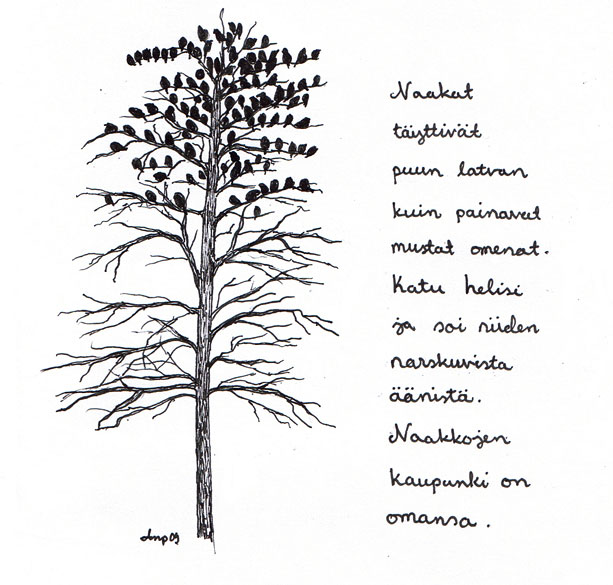 Naakat
täyttivät
puun latvan
kuin painavat
mustat omenat.
Katu helisi
ja soi niiden
narskuvista
äänistä.
Naakkojen
kaupunki on
omansa.